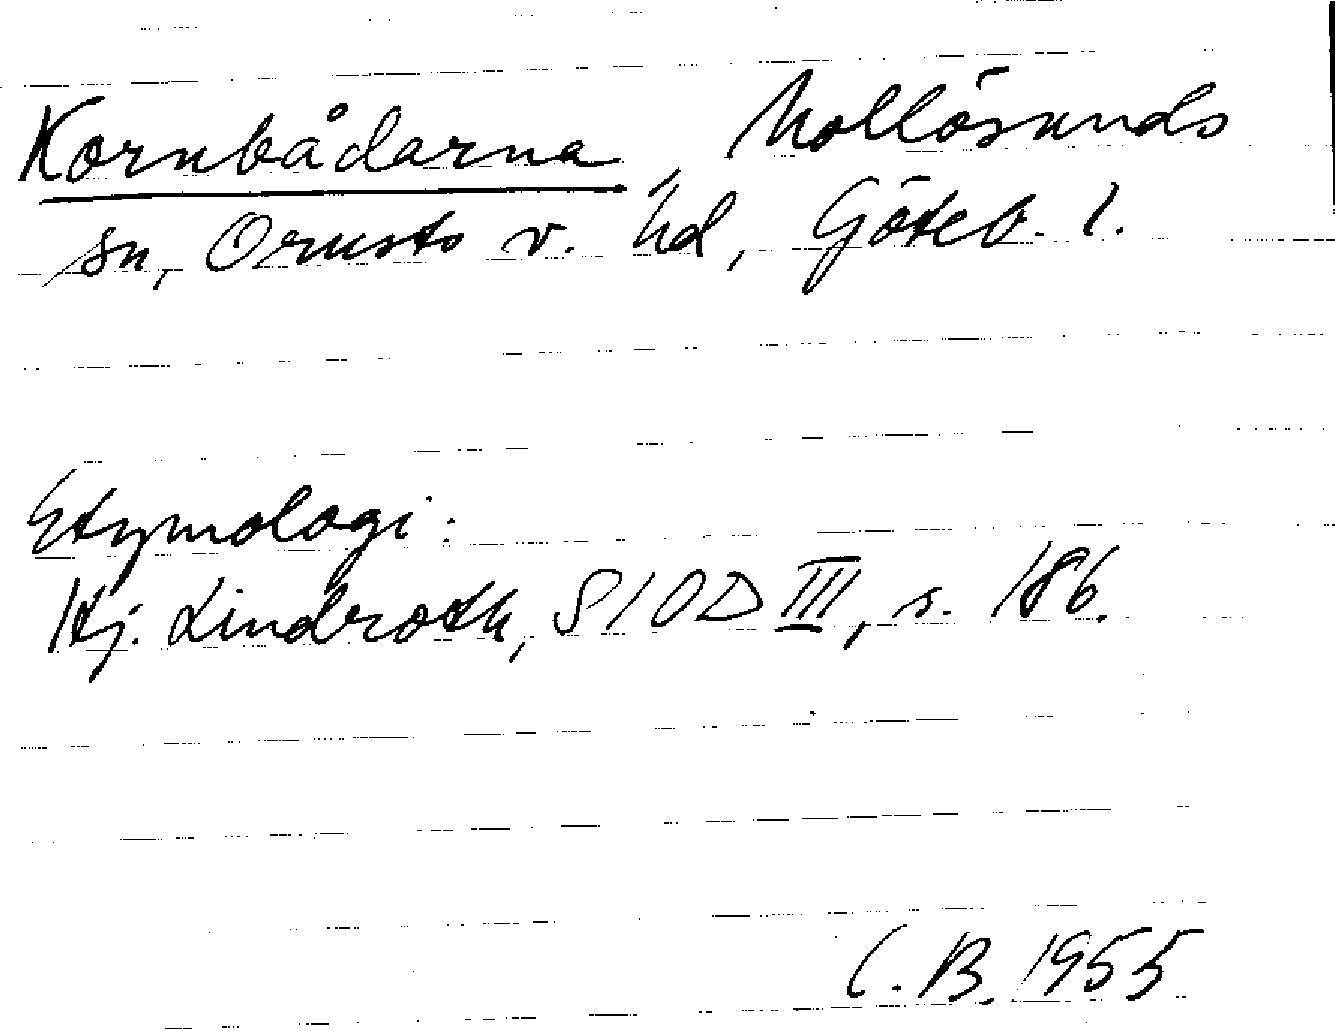 Kornbådarna, Mollösunds
sn, Orusts v. hd, Göteb. l.
Etymologi:
Hj. Lindroth, SIOD III, s. 186.
C. B. 1955